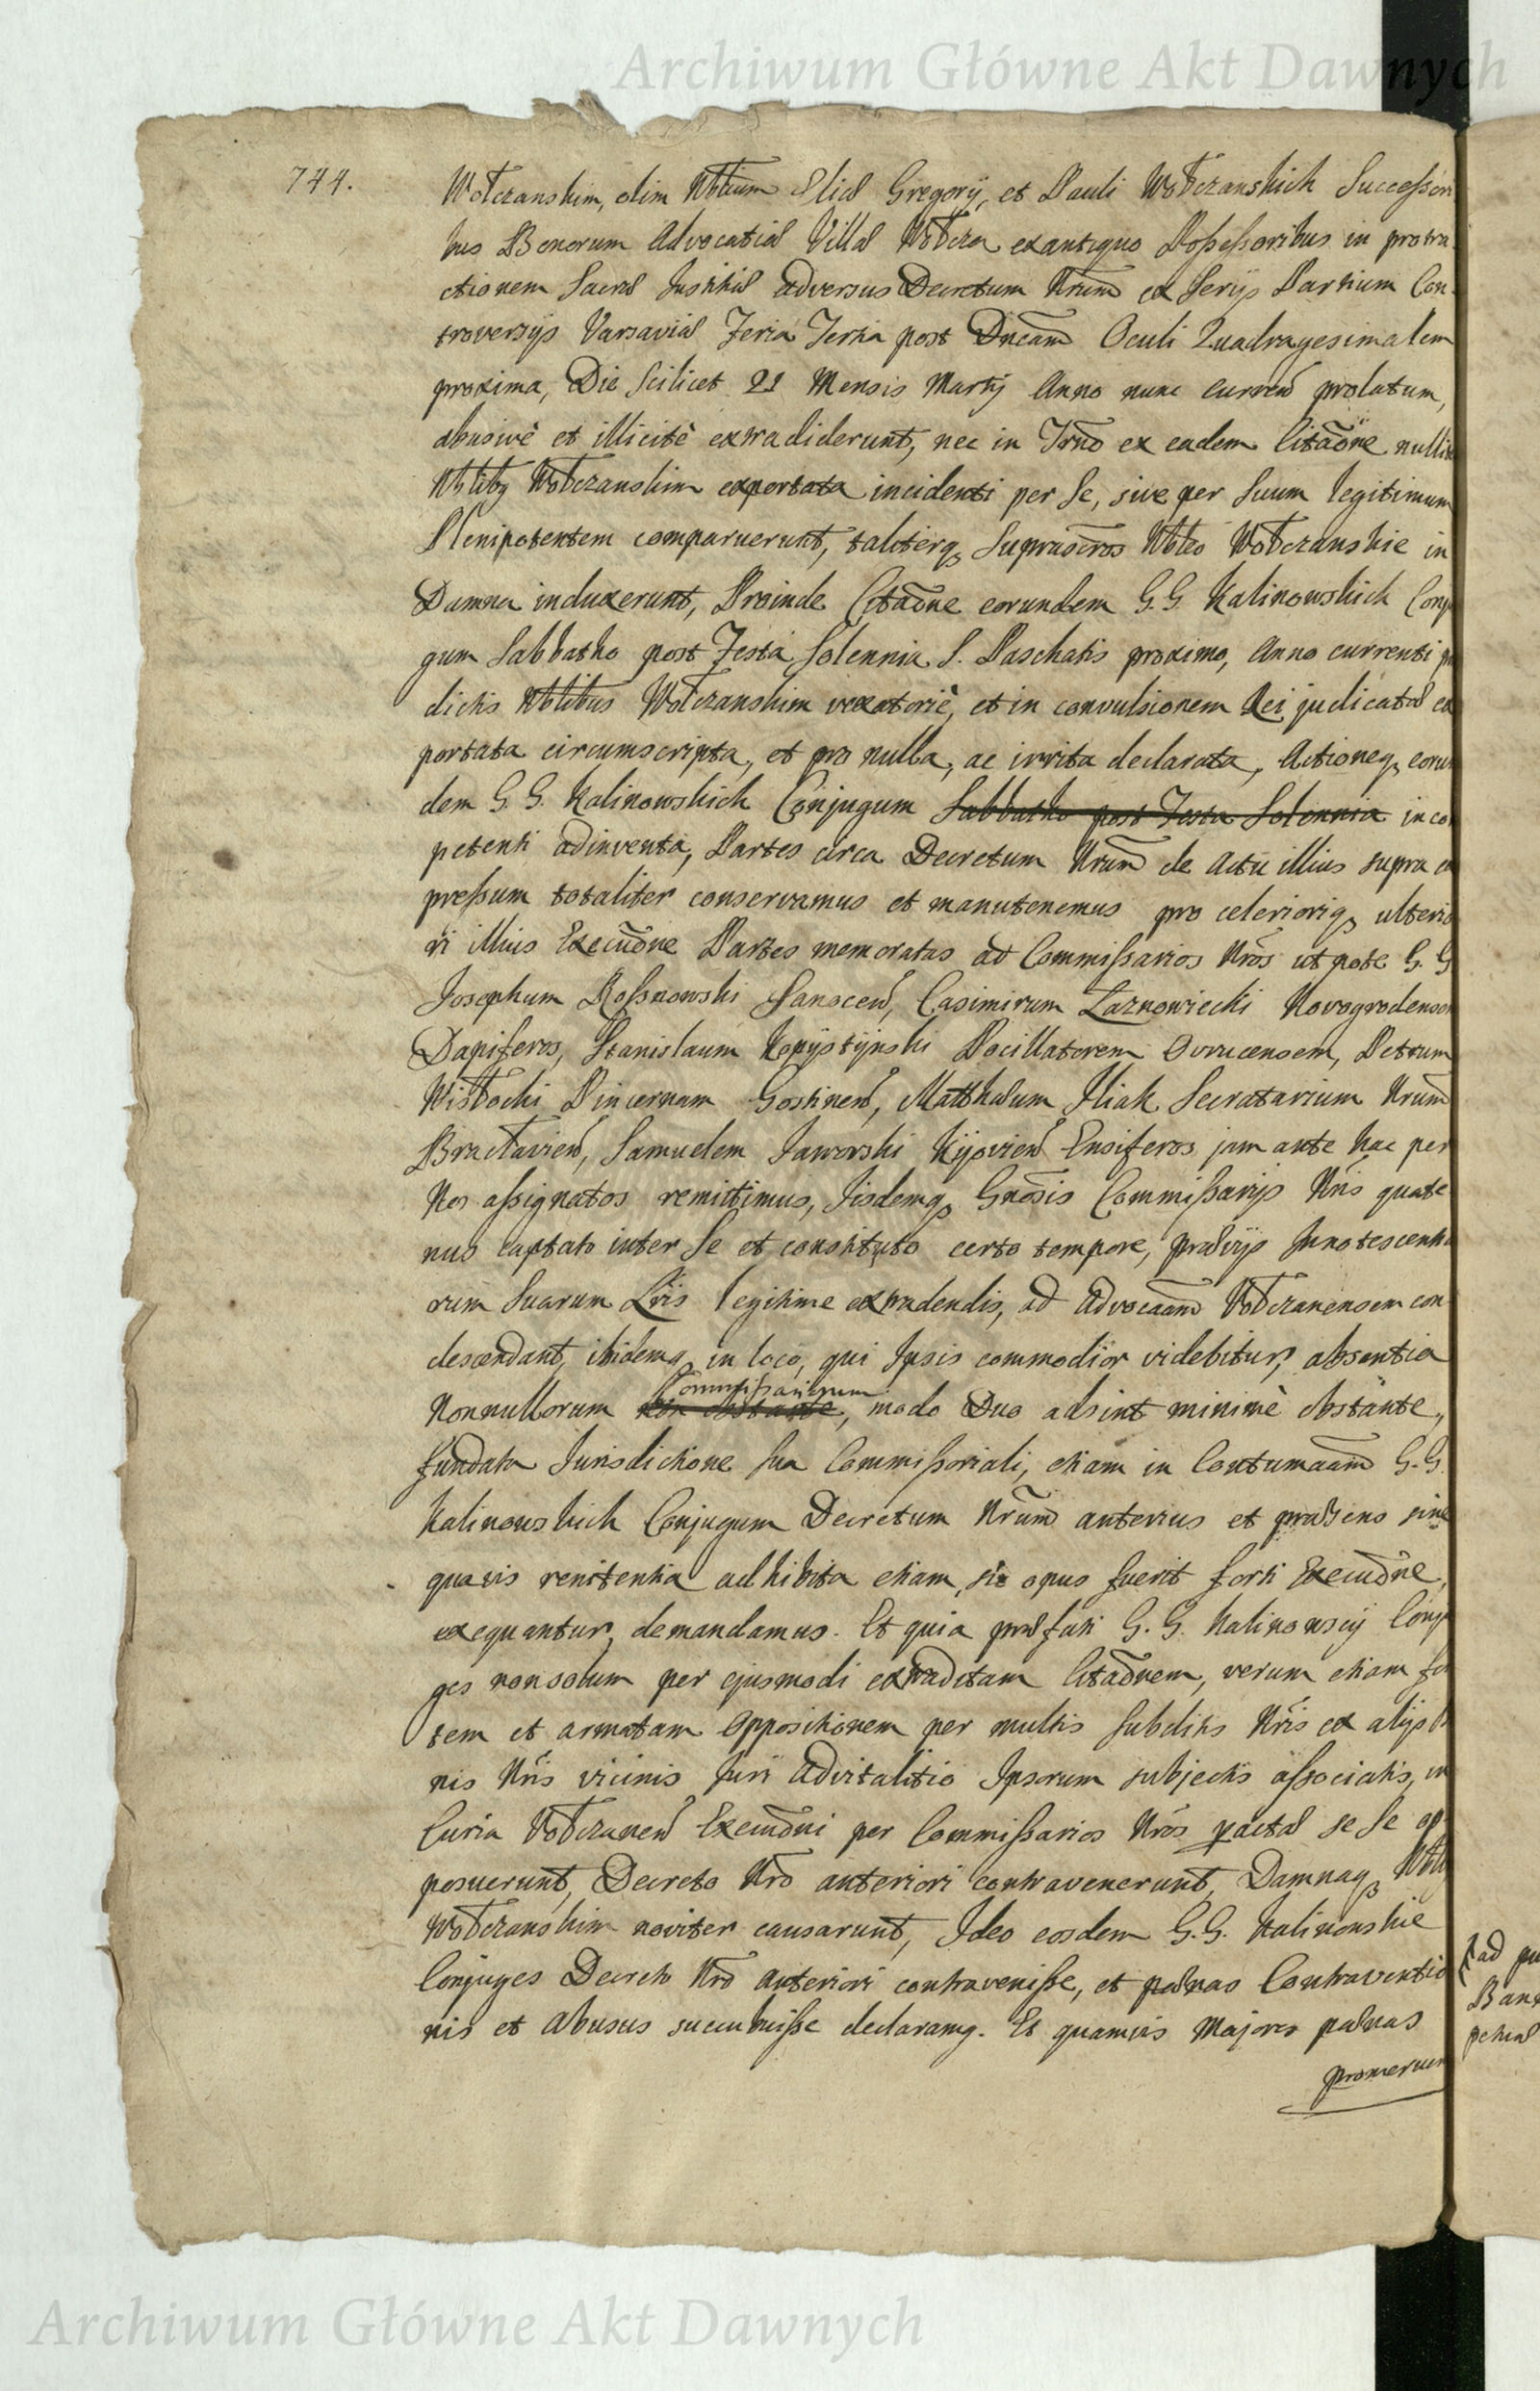 Archiwum Główne Akt Dawnych
744.
Wołczanskim, olim Nbilium Eliæ Gregorij, et Pauli Wołczanskich Successori
bus Bonorum Advocatiæ Villæ Wołcza exantiquo Possessoribus in protra
ctionem Sacræ Justitiæ adversus Decretum Nrum ex Serijs Partium Con
troversijs Varsaviæ Feria Tertia post Dncam Oculi Quadragesimalem
proxima, Die Scilicet 21 Mensis Martij Anno nunc curren prolatum,
abusivè et illicitè extradiderunt, nec in Trno ex eadem Citaõne nulli
Nblibq Wołczanskim exportata incidenti per Se, sive per Suum legitimum
Plenipotentem comparuerunt, taliterq Suprascros Nbles Wołczanskie in
Damna induxerunt, Proinde Citaõne eorundem G. G. Kalinowskich Conju
gum Sabbatho post Festa Solennia S. Paschatis proximo, Anno currenti
dictis Nblibus Wołczanskim vexatoriè, et in convulsionem Rei judicatæ ex
portata circumscripta, et pro nulla, ac irrita declarata, Actioneq, eorun
dem G. G. Kalinowskich Conjugum Sabbatho post Festa Solennia inco
petenti adinventa, Partes circa Decretum Nrum de Actu illius supra ex
pressum totaliter conservamus et manutenemus pro celerioriq, ulterio
ri illius Execuõne Partes memoratas ad Commissarios Nros utpote G. G
Josephum Rossnowski Sanocen, Casimirum Łaznowiecki Novogrodensem
Dapiferos, Stanislaum Kopijstijnski Pocillatorem Ovrucensem, Petrum
Wisłocki Pincernam Gostinen, Matthæum Iliak Secretarium Nrum
Bracłavien, Samuelem Jaworski Kijovien Ensiferos jam ante hac per
Nos assignatos remittimus, Iisdemq Gnosis Commissarijs Nris quate
nus captato inter Se et constituto certo tempore, prævijs Innotescentia
rum Suarum Lris legitime extradendis, ad Advocaam Wołczanensem con
descendant, ibidemq in loco, qui Ipsis commodior videbitur, absentia
Nonnullorum non obstante Commissariorum, modo Duo adsint minimè obstante,
fundata Jurisdictione sua Commissoriali, etiam in Contumaciam G. G.
Kalinowskich Conjugum Decretum Nrum anterius et præsens sine
quavis renitentia adhibita etiam, si opus fuerit forti Execuõne,
exequantur, demandamus. Et quia præfati G. G. Kalinowscij Conju
ges non solum per ejusmodi extraditam Citaõnem, verum etiam for
tem et armatam Oppositionem per multis Subditis Nris ex alijs Bo
nis Nris vicinis Juri Advitalitio Ipsorum subjectis associatis, in
Curia Wołczanen Execuõni per Commissarios Nros peractæ se se op
posuerunt, Decreto Nro anteriori contravenerunt, Damnaq Nbli
Wołczanskim noviter causarunt, Ideo eosdem G. G. Kalinowskie
Conjuges Decreto Nro anteriori contravenisse, et pænas Contraventio
nis et Abusus succubuisse declaramq. Et quamvis Majores pænas
promeruer
ad pu
Bann
petuæ
Archiwum Główne Akt Dawnych